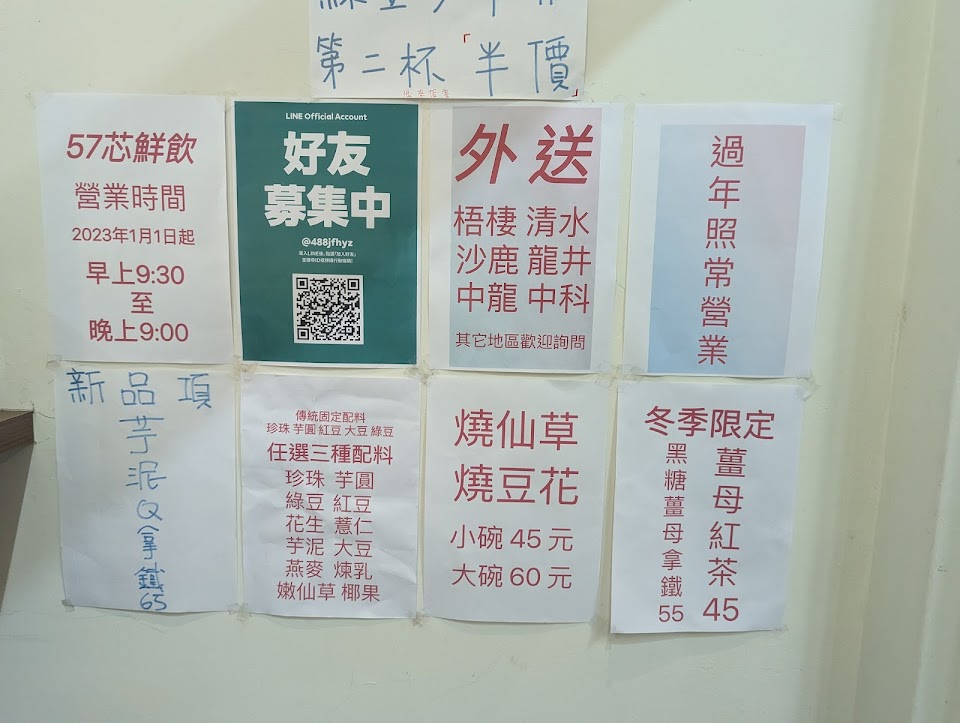 第二杯「半價」
57芯鮮飲
營業時間
2023年1月1日起
早上9:30
至
晚上9:00
LINE Official Account
好友
募集中
@488jfhyz
外送
梧棲 清水
沙鹿 龍井
中龍 中科
其它地區歡迎詢問
過年照常營業
新品項
芋泥Q拿鐵
65
傳統固定配料
珍珠 芋圓 紅豆 大豆 綠豆
任選三種配料
珍珠 芋圓
綠豆 紅豆
花生 薏仁
芋泥 大豆
燕麥 煉乳
嫩仙草 椰果
燒仙草
燒豆花
小碗 45 元
大碗 60 元
冬季限定
薑母紅茶 45
黑糖薑母拿鐵 55